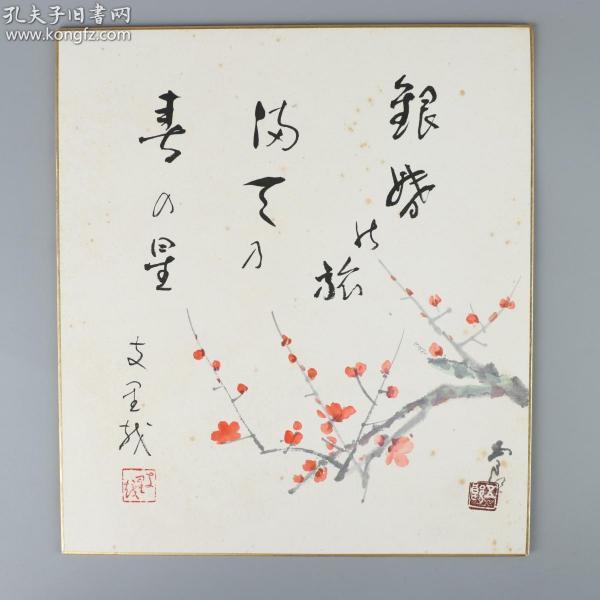 孔夫子旧书网
www.kongfz.com
銀婚の旅
満天の
春の星